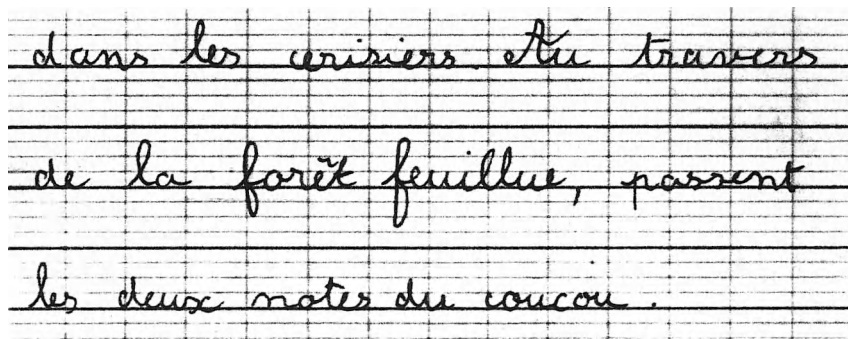 dans les cerisiers. Au travers
de la forêt feuillue, passent
les deux notes du coucou.